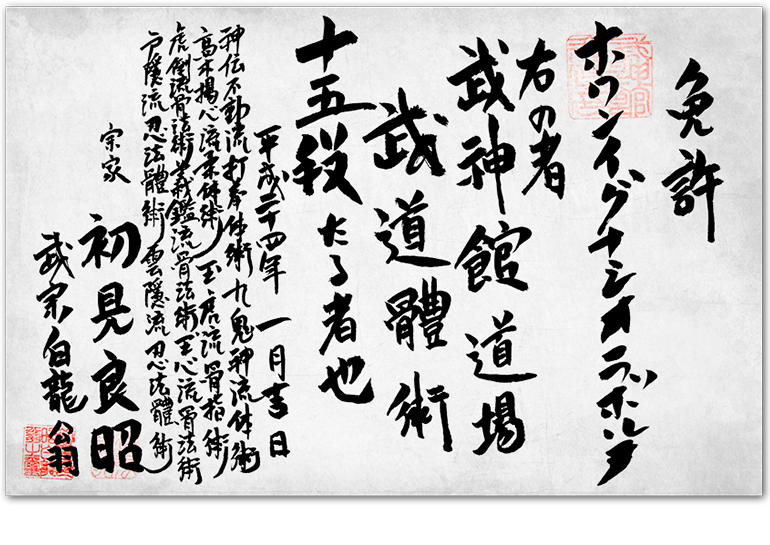 免許
ホワンイグナシオラッポルタ
右の者
武神館道場
武道體術
十五段たる者也
平成二十四年一月吉日
神伝不動流打拳体術九鬼神流体術
高木揚心流柔体術玉虎流骨指術
虎倒流骨法術義鑑流骨法術玉心流骨法術
戸隠流忍法體術雲隠流忍法體術
宗家
初見良昭
武宗白龍翁